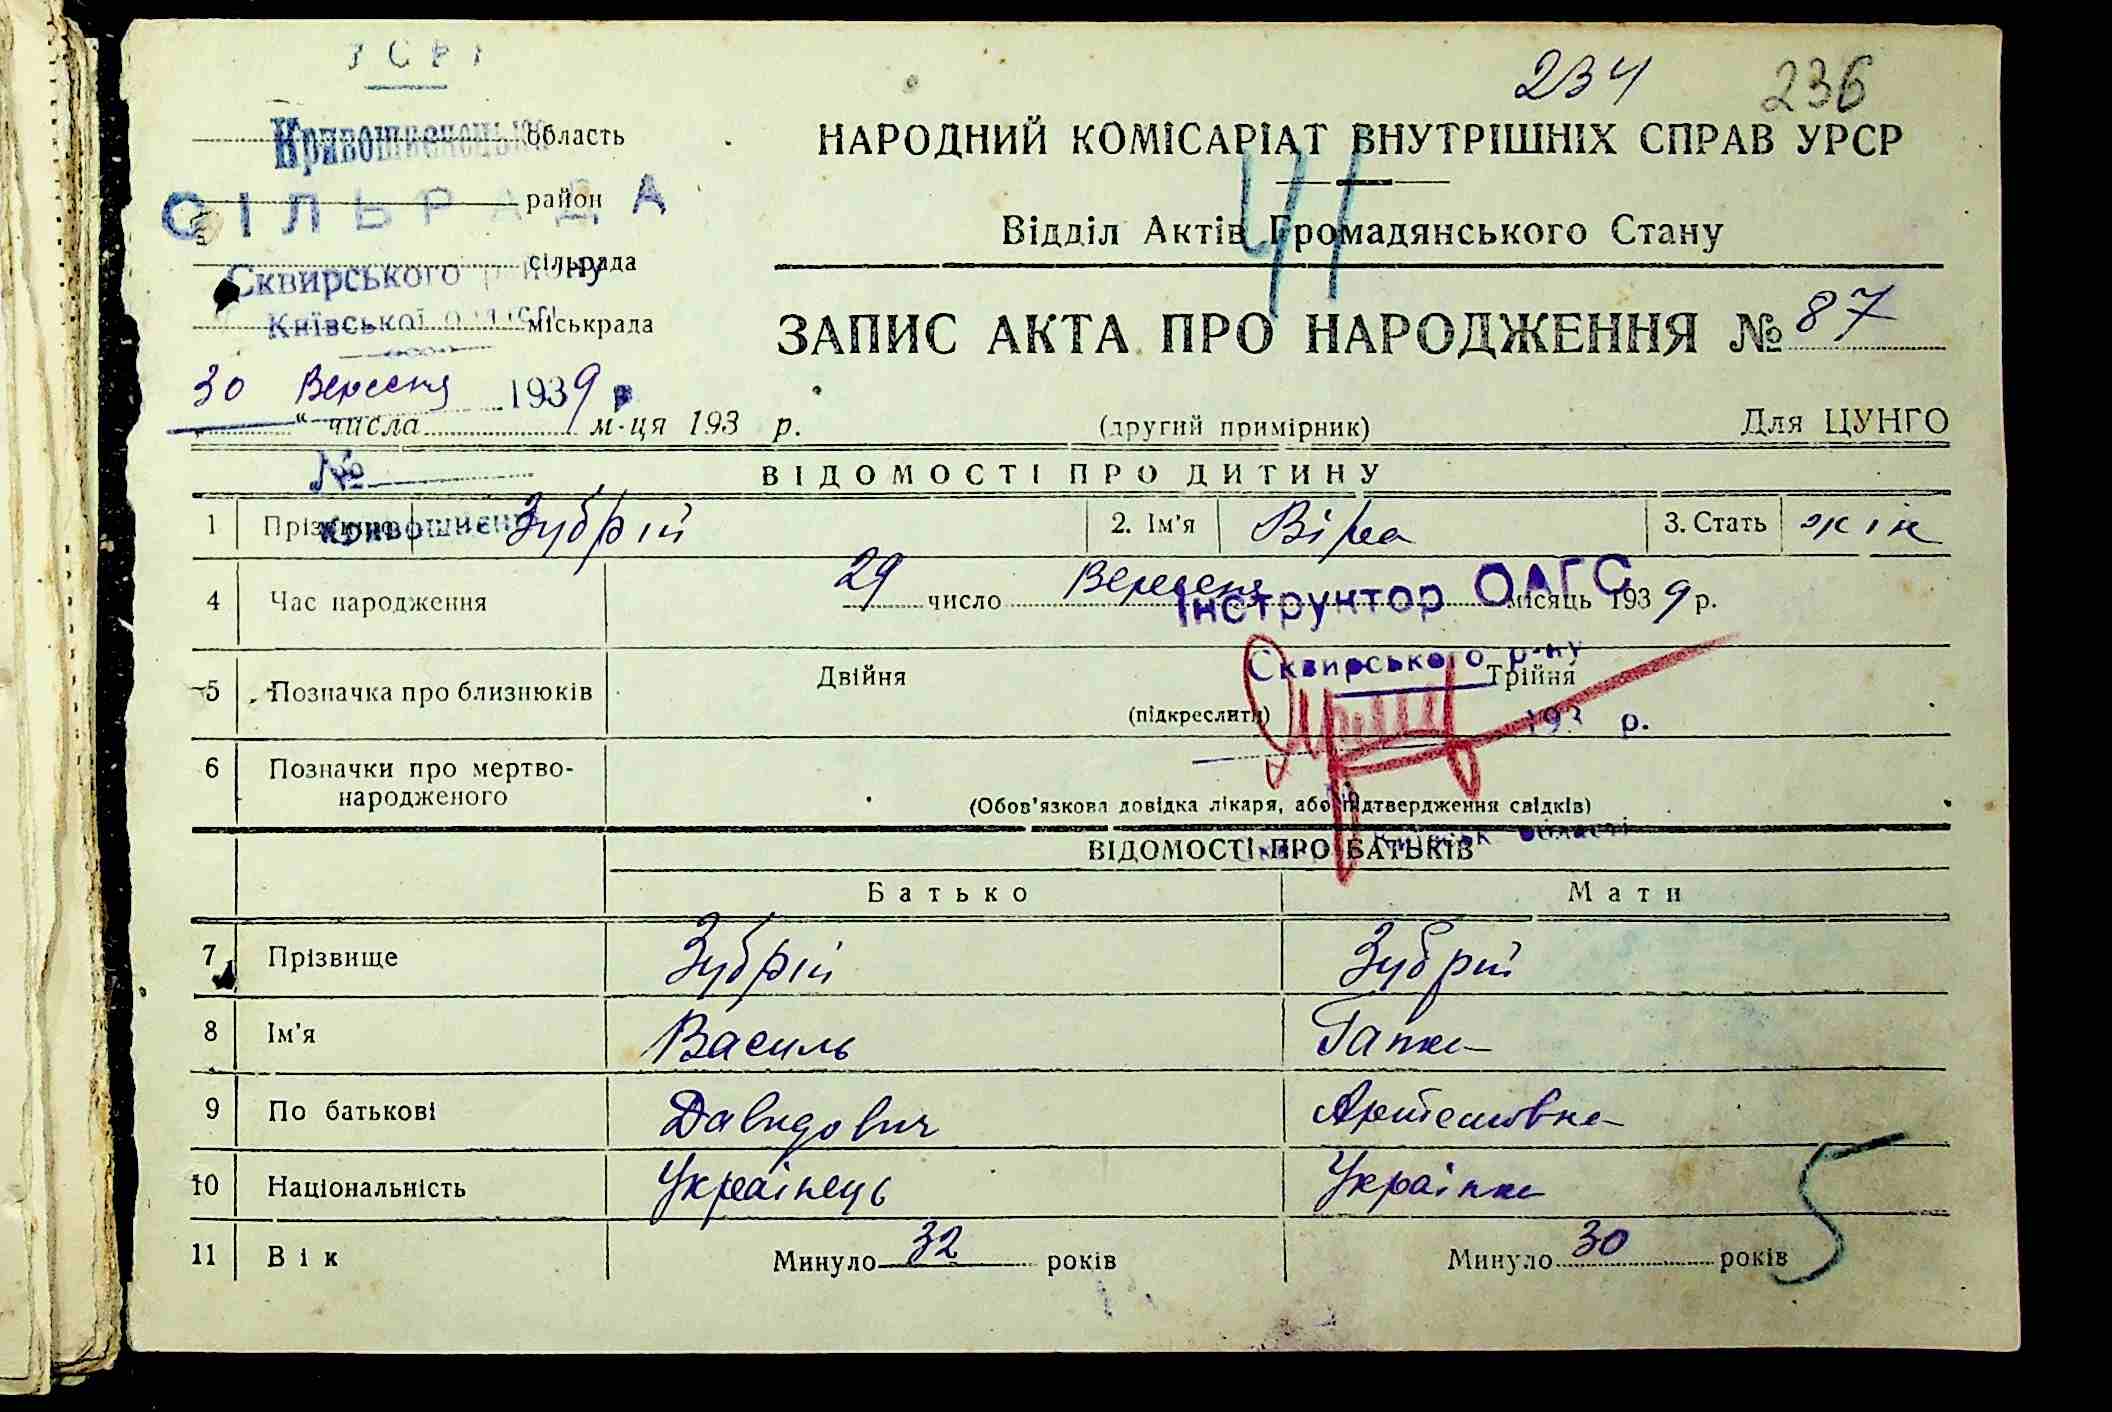 УСРР
234 236
Кривошиєнецька область
НАРОДНИЙ КОМІСАРІАТ ВНУТРІШНІХ СПРАВ УРСР
СІЛЬРАДА район
41
Відділ Актів Громадянського Стану
Сквирського району сільрада
Київської міськрада
ЗАПИС АКТА ПРО НАРОДЖЕННЯ № 87
30 Вересня 1939 р
„ “ числа м-ця 193 р.
(другий примірник)
Для ЦУНГО
№
ВІДОМОСТІ ПРО ДИТИНУ
1 Прізвище Зубрій 2. Ім'я Віра 3. Стать жін
4 Час народження 29 число Вересня місяць 1939 р.
Інструктор ОАГС
Сквирського р-ну
5 Позначка про близнюків Двійня Трійня
(підкреслити)
193 р.
6 Позначки про мертво-
народженого
(Обов'язкова довідка лікаря, або підтвердження свідків)
ВІДОМОСТІ ПРО БАТЬКІВ
Батько Мати
7 Прізвище Зубрій Зубрій
8 Ім'я Василь Гапка
9 По батькові Давидович Артемовна
10 Національність Українець Українка
11 Вік Минуло 32 років Минуло 30 років
5